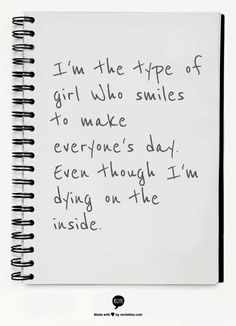 I'm the type of
girl who smiles
to make
everyone's day.
Even though I'm
dying on the
inside.
Made with ♥ by recitethis.com